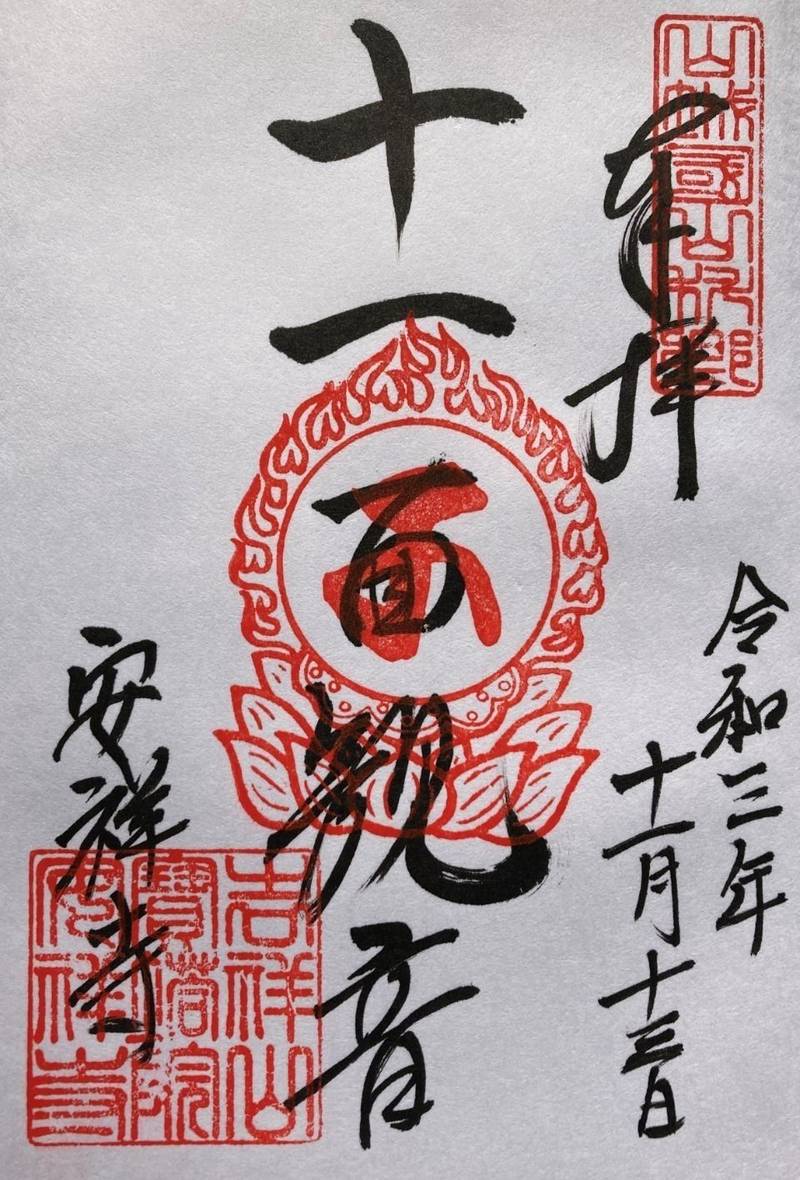 山城國山科郷
奉拝
令和三年
十一月十三日
十一面観音
安祥寺
吉祥山
寶塔院
安祥寺